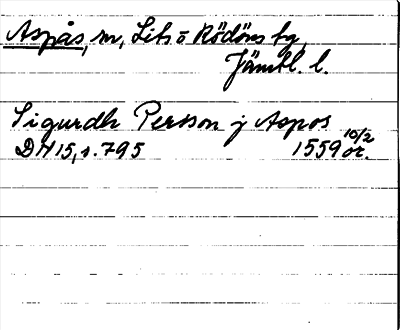 Aspås, sn, Lits o Rödöns tg,
Jämtl. l.
Sigurdh Persson j Aspos
DN 15, s. 795 1559 10/2 or.